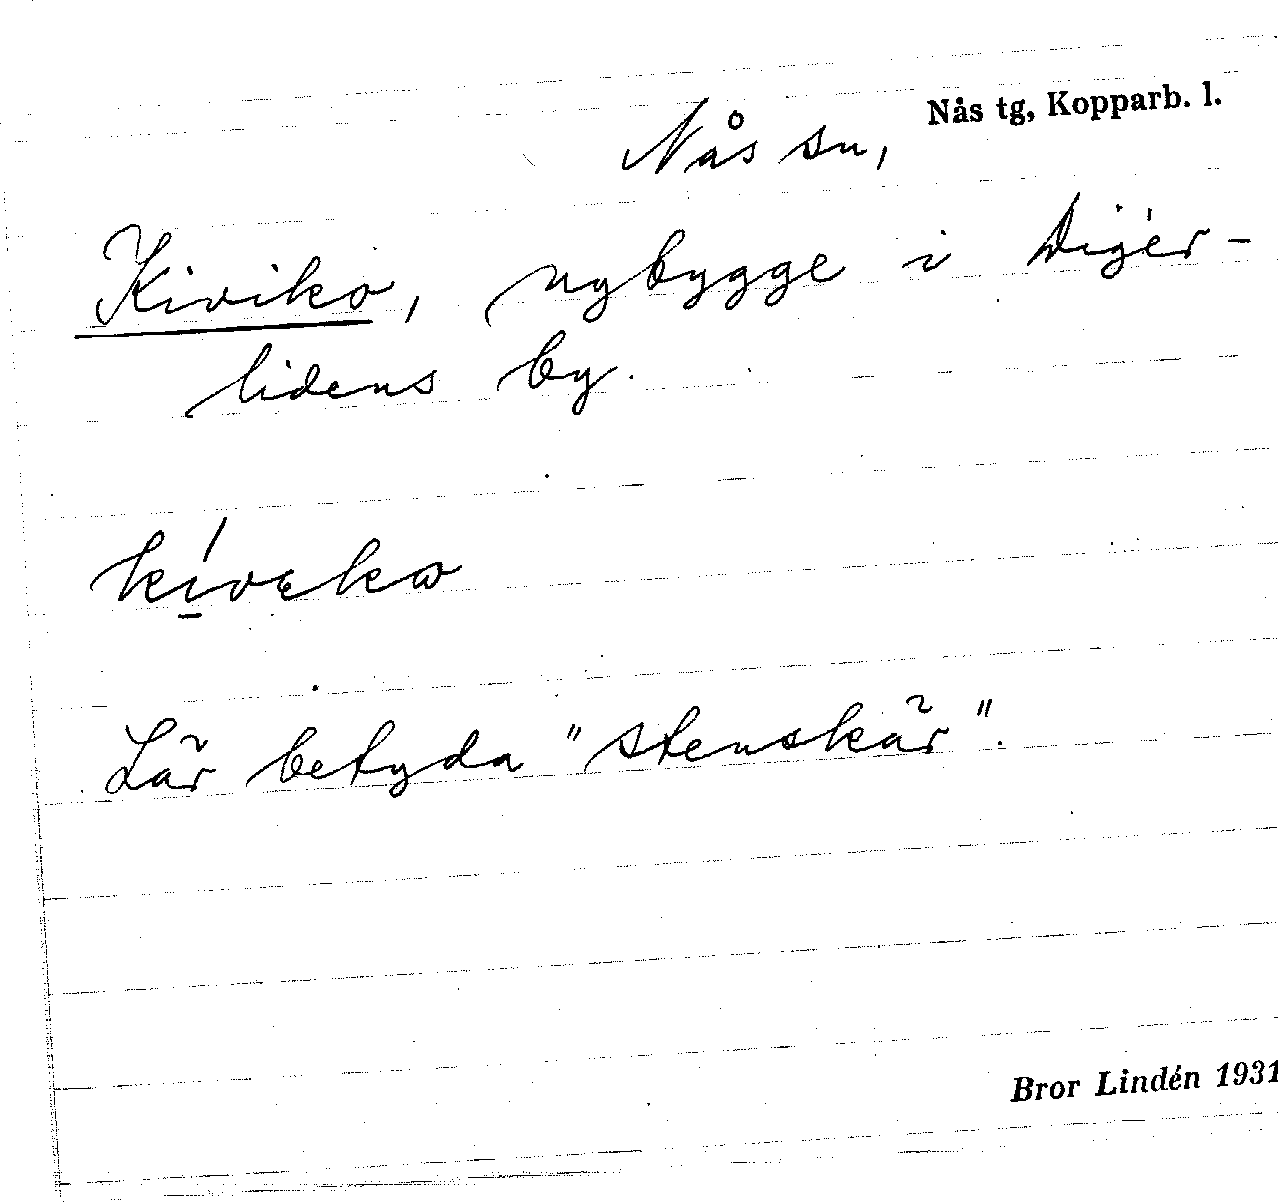 Nås tg, Kopparb. l.
Nås sn,
Kiviko, nybygge i Diger-
lidens by.
kívₑkω
Lär betyda "stenskär".
Bror Lindén 1931